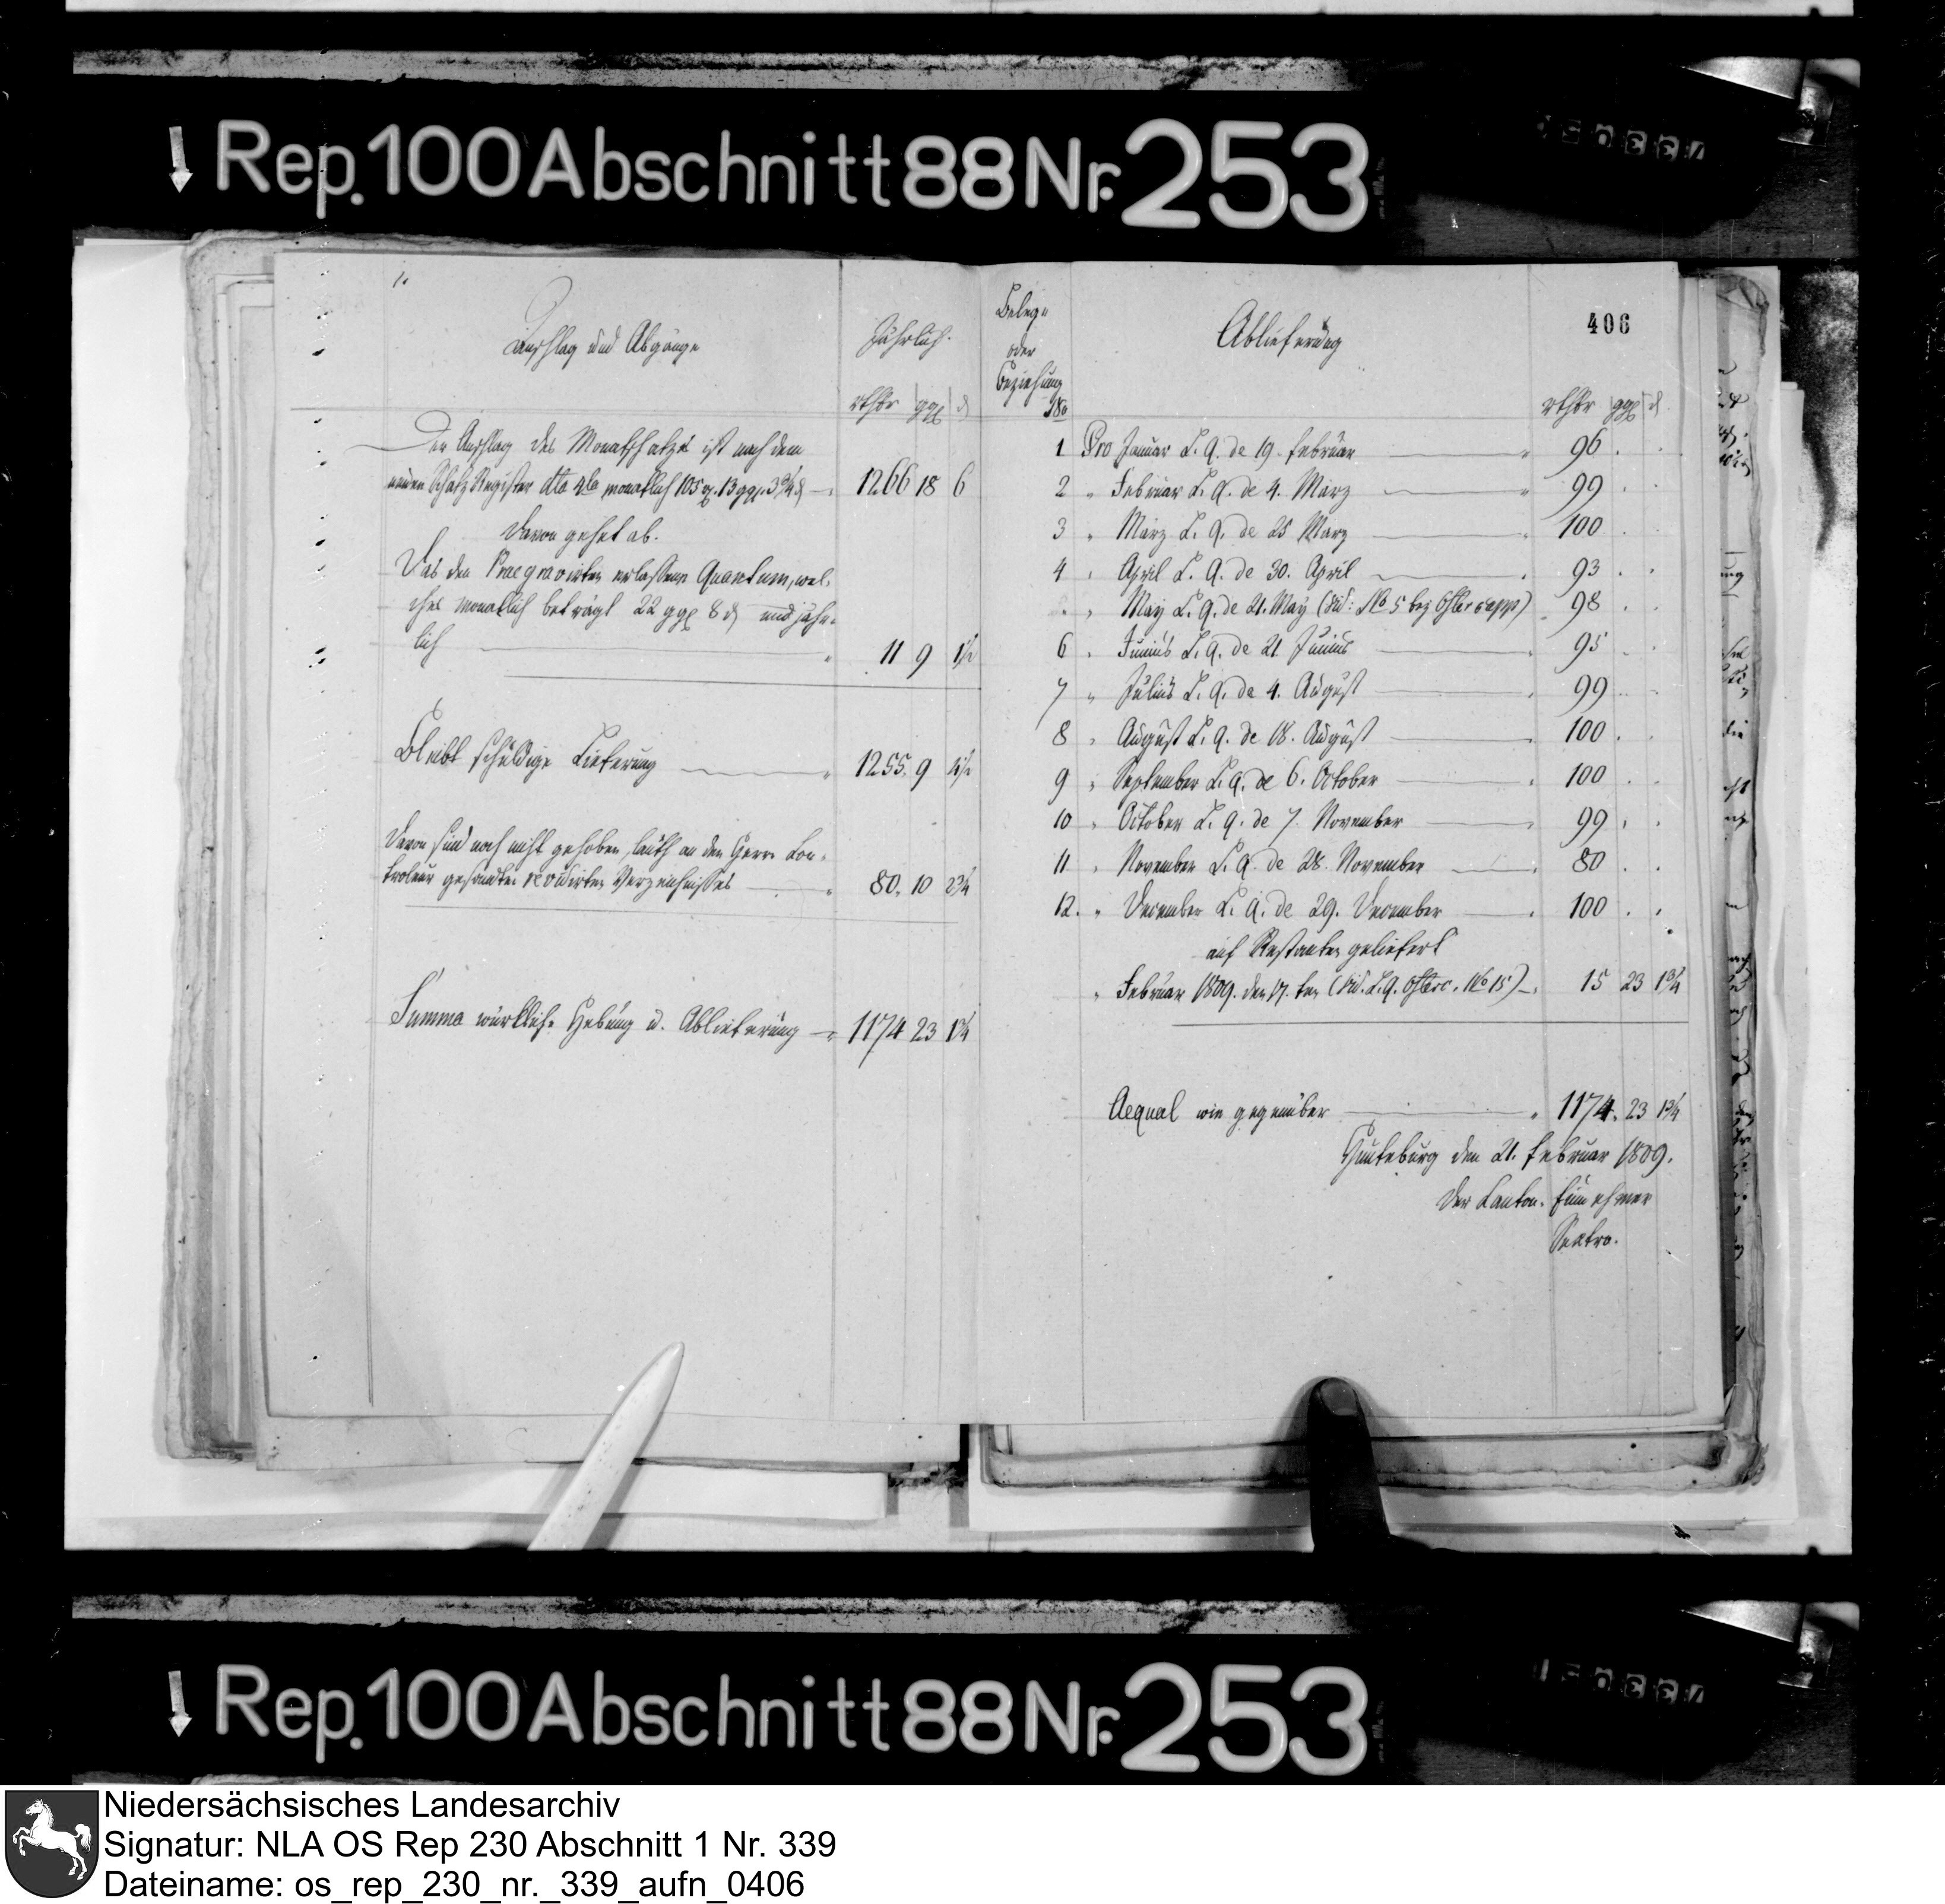 Rep. 100 Abschnitt 88 Nr. 253
Anschlag und Abgänge
Jährlich.
rthlr ggr d
Der Anschlag des Monatschatzes ist nach dem
neuen Schatz Register monatlich 105 r. 13 ggr. 3 3/4 d 1266 18 6
Davon gehet ab.
Das den Praegravirten erlassene Quantum, wel-
ches monatlich beträgt 22 ggr 8 d und jähr-
lich 11 9 1 1/2
Bleibt schuldige Lieferung 1255. 9 4 1/2
Davon sind noch nicht gehoben, lauth an den Herrn Con-
troleur gesandten revidirten Verzeichnisses 80. 10 2 3/4
Summa würkliche Hebung u. Ablieferung 1174 23 1 3/4
Belege
oder
Beziehung
No
Ablieferung
406
rthlr ggr d
1 Pro Januar L. q. de 19. Februar 96
2 " Februar L. q. de 4. März 99
3 " März L. q. de 25 März 100
4 " April L. q. de 30. April 93
" May L. q. de 21. May (vid: No 5 bey Ostercapp) 98
6 " Junius L. q. de 21. Junius 95
7 " Julius L. q. de 4. August 99
8 " August L. q. de 18. August 100
9 " September L. q. de 6. October 100
10 " October L. q. de 7. November 99
11 " November L. q. de 28. November 80
12. " December L. q. de 29. December 100
auf Restanten geliefert
" Februar 1809. den 17. ten (vid. L. q. Osterc. No 15) 15 23 1 3/4
Aequal wie gegenüber 1174. 23 1 3/4
Hunteburg den 21. Februar 1809.
Der Canton. Einnehmer
Rep. 100 Abschnitt 88 Nr. 253
Niedersächsisches Landesarchiv
Signatur: NLA OS Rep 230 Abschnitt 1 Nr. 339
Dateiname: os_rep_230_nr._339_aufn_0406